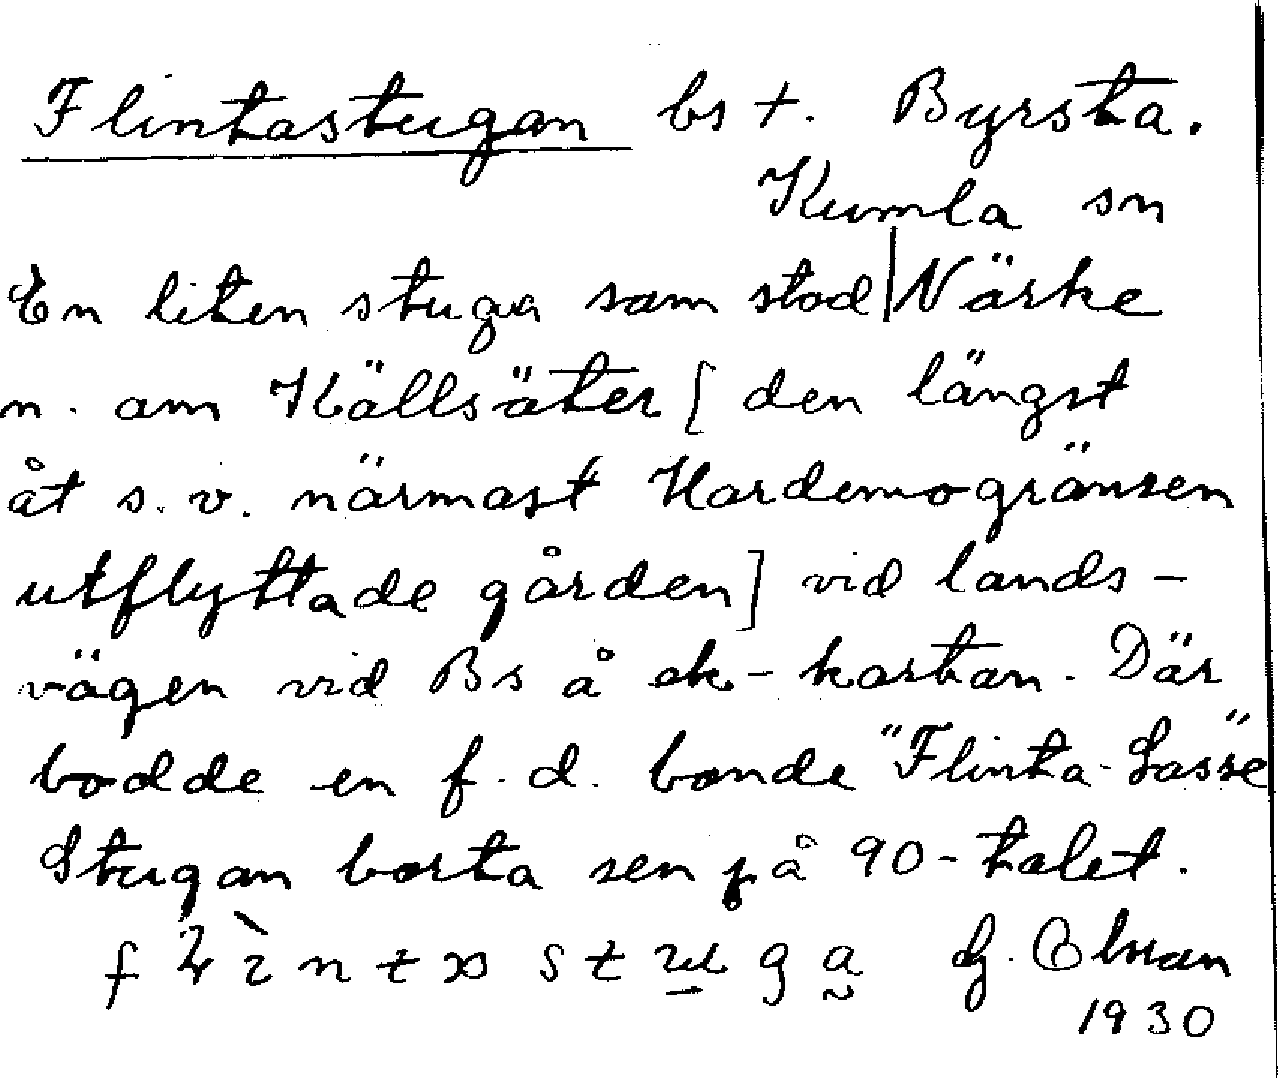 Flintastugan bs †. Byrsta.
Kumla sn
En liten stuga som stod | Närke
n. om Källsäter [den längst
åt s.v. närmast Hardemogränsen
utflyttade gården] vid lands-
vägen vid Bs å ek-kastan. Där
bodde en f.d. bonde "Flinta-Lasse"
Stugan borta sen på 90-talet.
G. Olsson
1930